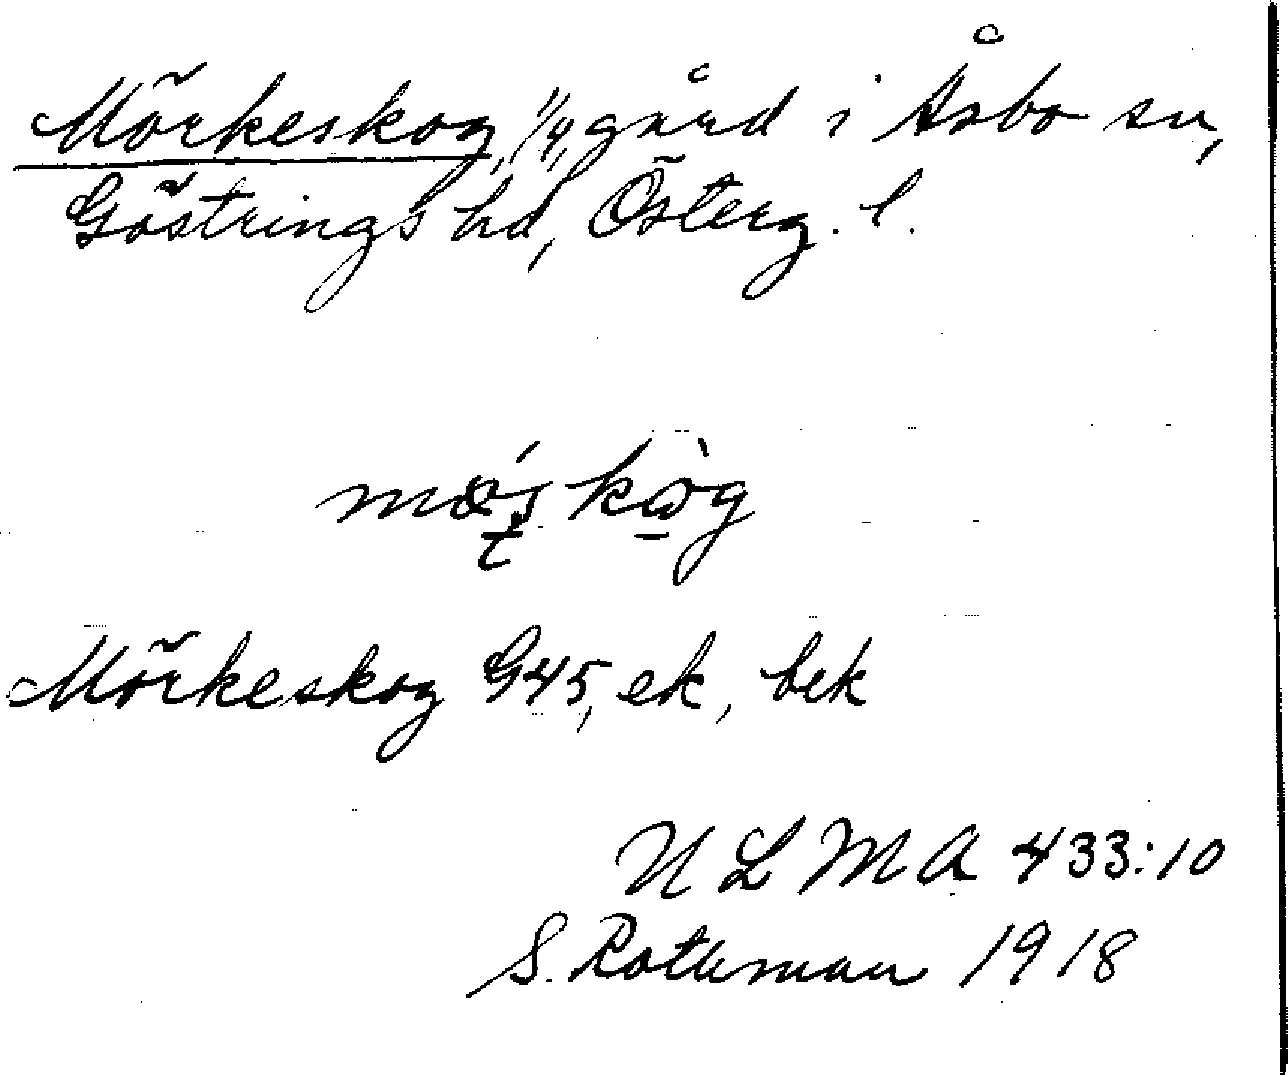 Mörkeskog, 1/4, gård i Åsbo sn,
Göstrings hd, Österg. l.
Mörkeskog G45, ek, bek
ULMA 433:10
S. Rothman 1918